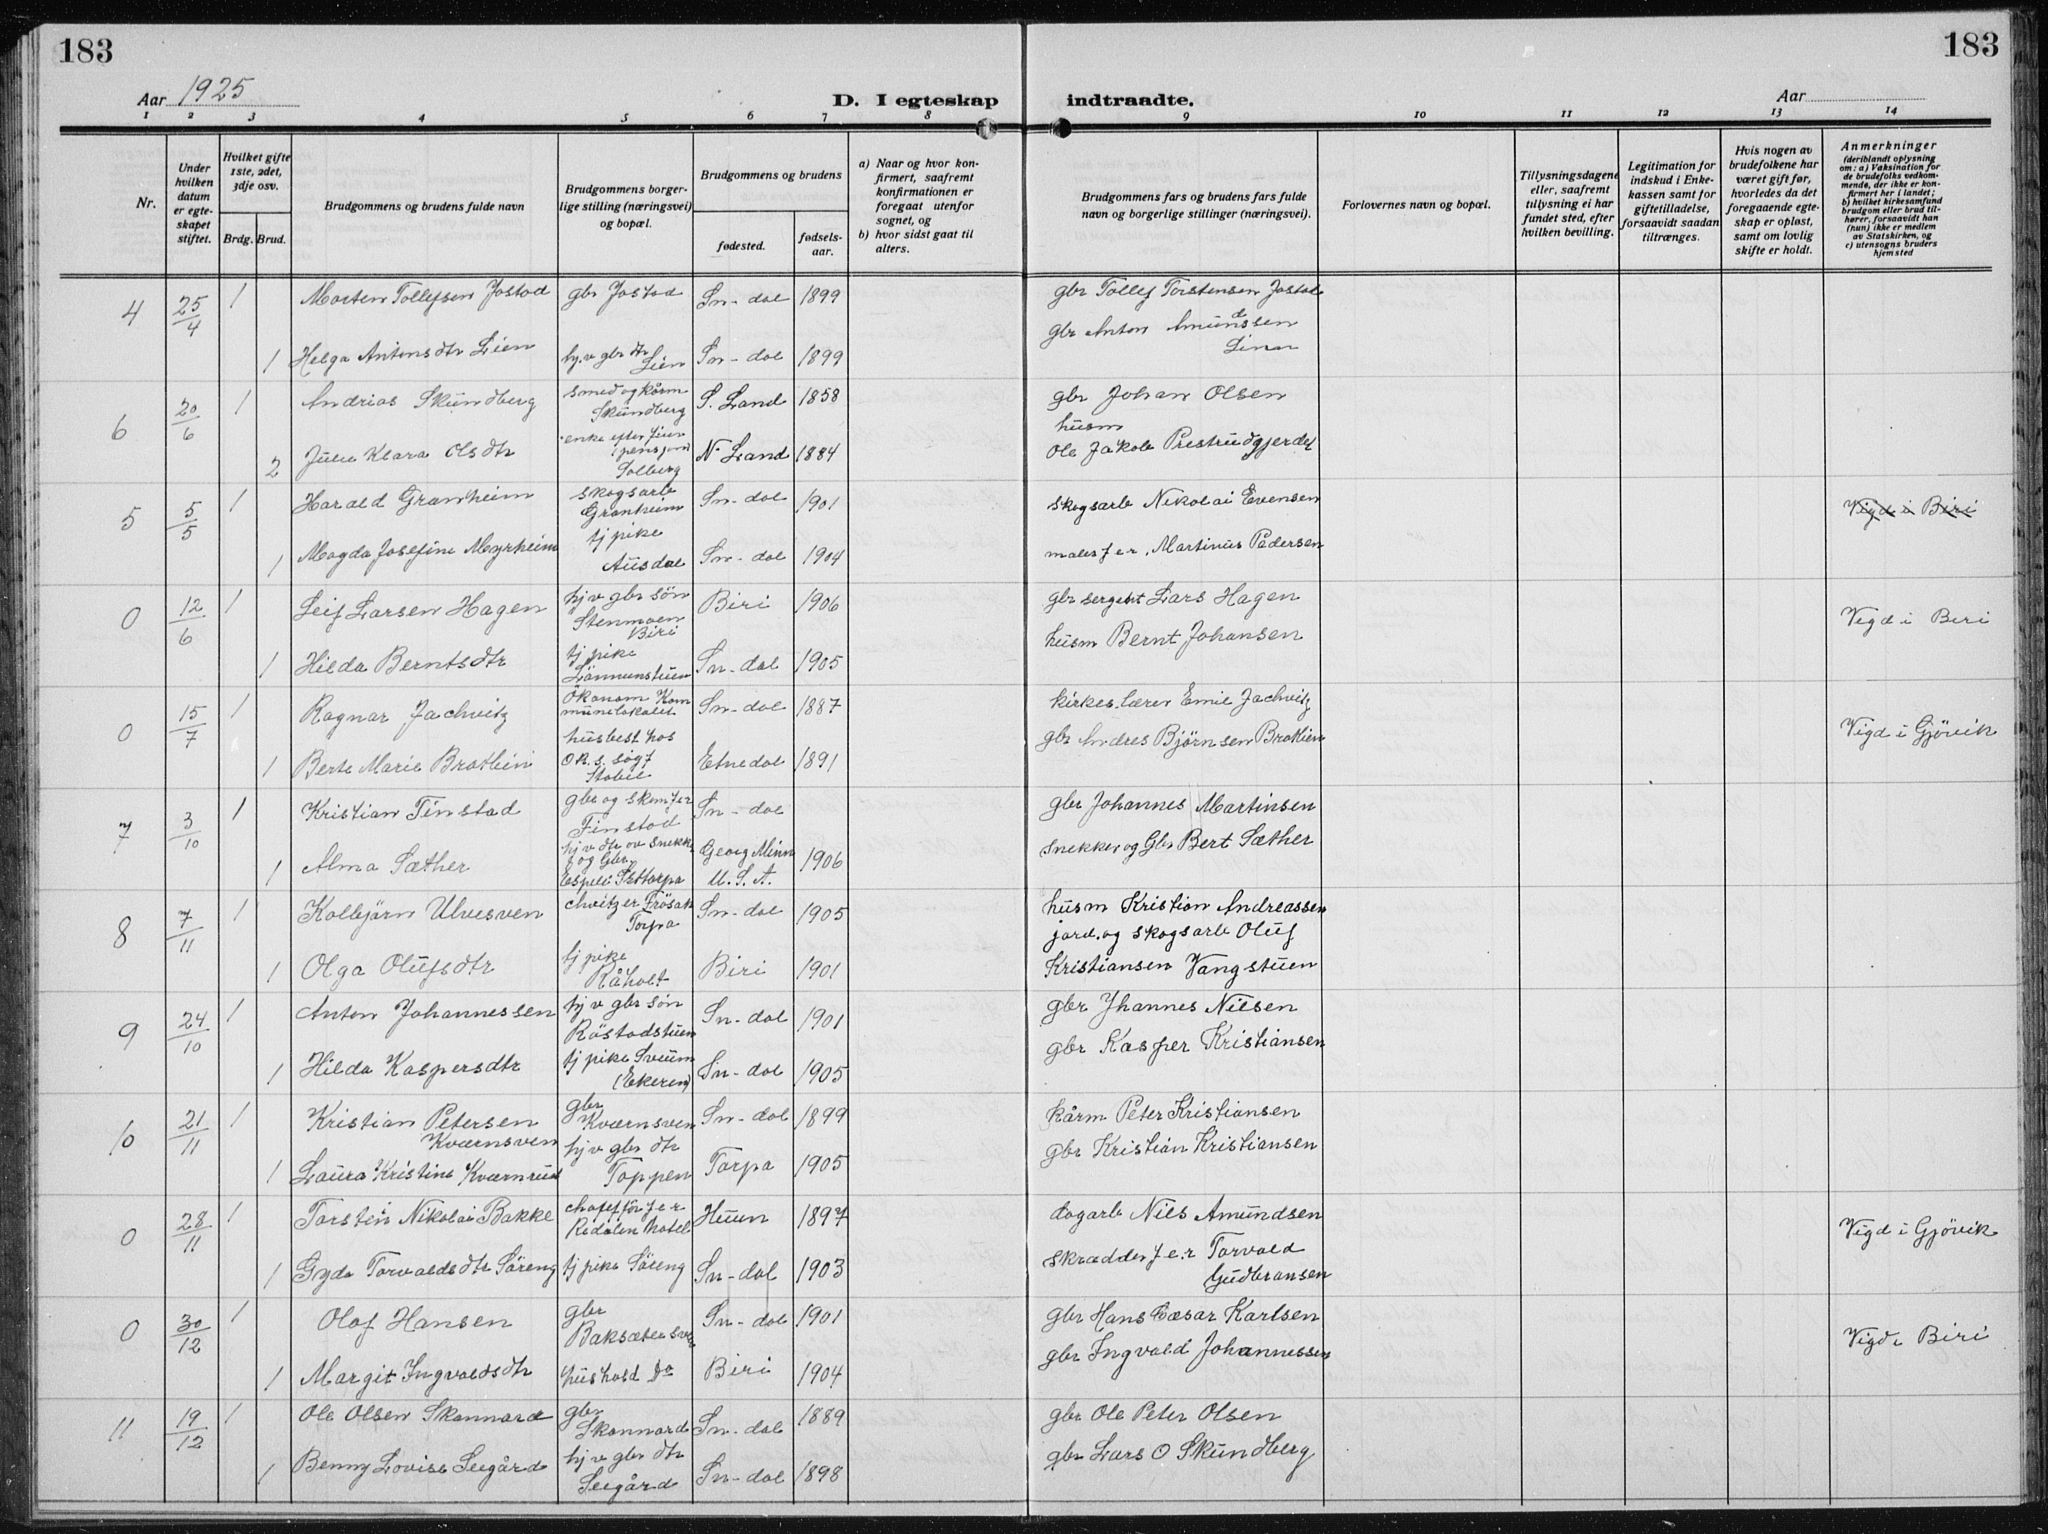 183
183
Aar 1925
D. I egteskap
indtraadte.
Aar
1 2 3 4 5 6 7 8 9 10 11 12 13 14
Nr.
Under hvilken datum er egteskapet stiftet.
Hvilket gifte 1ste, 2det, 3dje osv.
Brdg. Brud.
Brudgommens og brudens fulde navn
Brudgommens borgerlige stilling (næringsvei) og bopæl.
Brudgommens og brudens
fødested. fødselsaar.
a) Naar og hvor konfirmert, saafremt konfirmationen er foregaat utenfor sognet, og
b) hvor sidst gaat til alters.
Brudgommens fars og brudens fars fulde navn og borgerlige stillinger (næringsvei).
Forlovernes navn og bopæl.
Tillysningsdagene eller, saafremt tillysning ei har fundet sted, efter hvilken bevilling.
Legitimation for indskud i Enkekassen samt for giftetilladelse, forsaavidt saadan tiltrænges.
Hvis nogen av brudefolkene har været gift før, hvorledes da det foregaaende egteskap er opløst, samt om lovlig skifte er holdt.
Anmerkninger
(deriblandt oplysning om: a) Vaksination for de brudefolks vedkommende, der ikke er konfirmert her i landet; b) hvilket kirkesamfund brudgom eller brud tilhører, forsaavidt han (hun) ikke er medlem av Statskirken, og c) utensogns bruders hjemsted
4 25/4 1 Morten Tollefsen Jostad gbr Jostad Sn-dal 1899 gbr Tollef Torstensen Jostad
1 Helga Antonsdtr Lien hj.v gbr dtr Lien Sn-dal 1899 gbr Anton Amundssen
6 20/6 1 Andrias Skundberg smed og kårm Skundberg S. Land 1858 gbr Johan Olsen
2 Julie Klara Olsdtr enke efter Solberg N. Land 1884 husm Ole Jakob Prestrudgjerdet
5 5/5 1 Harald Granheim skogsarb Granheim Sn-dal 1901 skogsarb Nikolai Evensen Vigd i Biri
1 Magda Josefine Myrheim tj pike Ausdal Sn-dal 1904 males f e r, Martinus Pedersen
0 12/6 1 Leif Larsen Hagen hj v gbr søn Stenmoen Biri Biri 1906 gbr sergent Lars Hagen Vigd i Biri
1 Hilda Berntsdtr tj pike Sn-dal 1905 husm Bernt Johansen
0 15/7 1 Ragnar Jachvitz Økonom Kommunelokalet Sn-dal 1887 kirkes. lærer Emil Jachvitz Vigd i Gjøvik
1 Berte Marie Bratlien husbest hos ok. s. søgf Stabil Etnedal 1891 gbr Andres Bjørnsen Bratlien
7 3/10 1 Kristian Finstad gbr og skomfer Finstad Sn-dal gbr Johannes Martinsen
1 Alma Sæther hj v dtr av snekk f og Gbr. Espeli Torpa Georg Minn U.S.A. 1906 snekker og Gbr Bert Sæther
8 7/11 1 Kolbjörn Ulvesven chvitzer Frösak Torpa Sn-dal 1905 husm Kristian Andreassen
1 Olga Olufsdtr tj pike Råholt Biri 1901 jord. og skogsarb Oluf Kristiansen Vangstuen
9 24/10 1 Anton Johannessen hj v gbr søn Röstadstuen Sn-dal 1901 gbr Jhannes Nilsen
1 Hilda Kaspersdtr tj pike Sveum (Ekeren) Sn-dal 1905 gbr Kasper Kristiansen
10 21/11 1 Kristian Petersen Kværnsven gbr Kværnsven Sn-dal 1899 kårm Peter Kristiansen
1 Laura Kristine Kværnrud hj v gbr dtr Toppen Torpa 1905 gbr Kristian Kristiansen
0 28/11 1 Torstein Nikolai Bakke chafför f e r Redalen hotel Huun 1897 dagarb Nils Amundsen Vigd i Gjövik
1 Gyda Torvaldsdtr Söreng tj pike Söreng Sn-dal 1903 skrædder f e. r Torvald Gudbransen
0 30/12 1 Olaf Hansen gbr Baksætersven Sn-dal 1901 gbr Hans Cæsar Karlsen Vigd i Biri
1 Margit Ingvaldsdtr hushold Do Biri 1904 gbr Ingvald Johannessen
11 19/12 1 Ole Olsen Skonnord gbr Skonnord Sn-dal 1889 gbr Ole Peter Olsen
1 Benny Lovise Seegård hj v gbr dtr Seegård Sn-dal 1898 gbr Lars O Skundberg